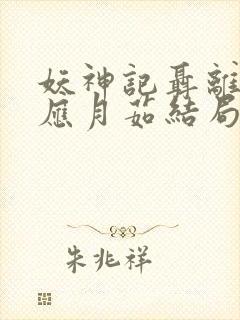 妖神記聶離
應月茹結局
朱兆祥